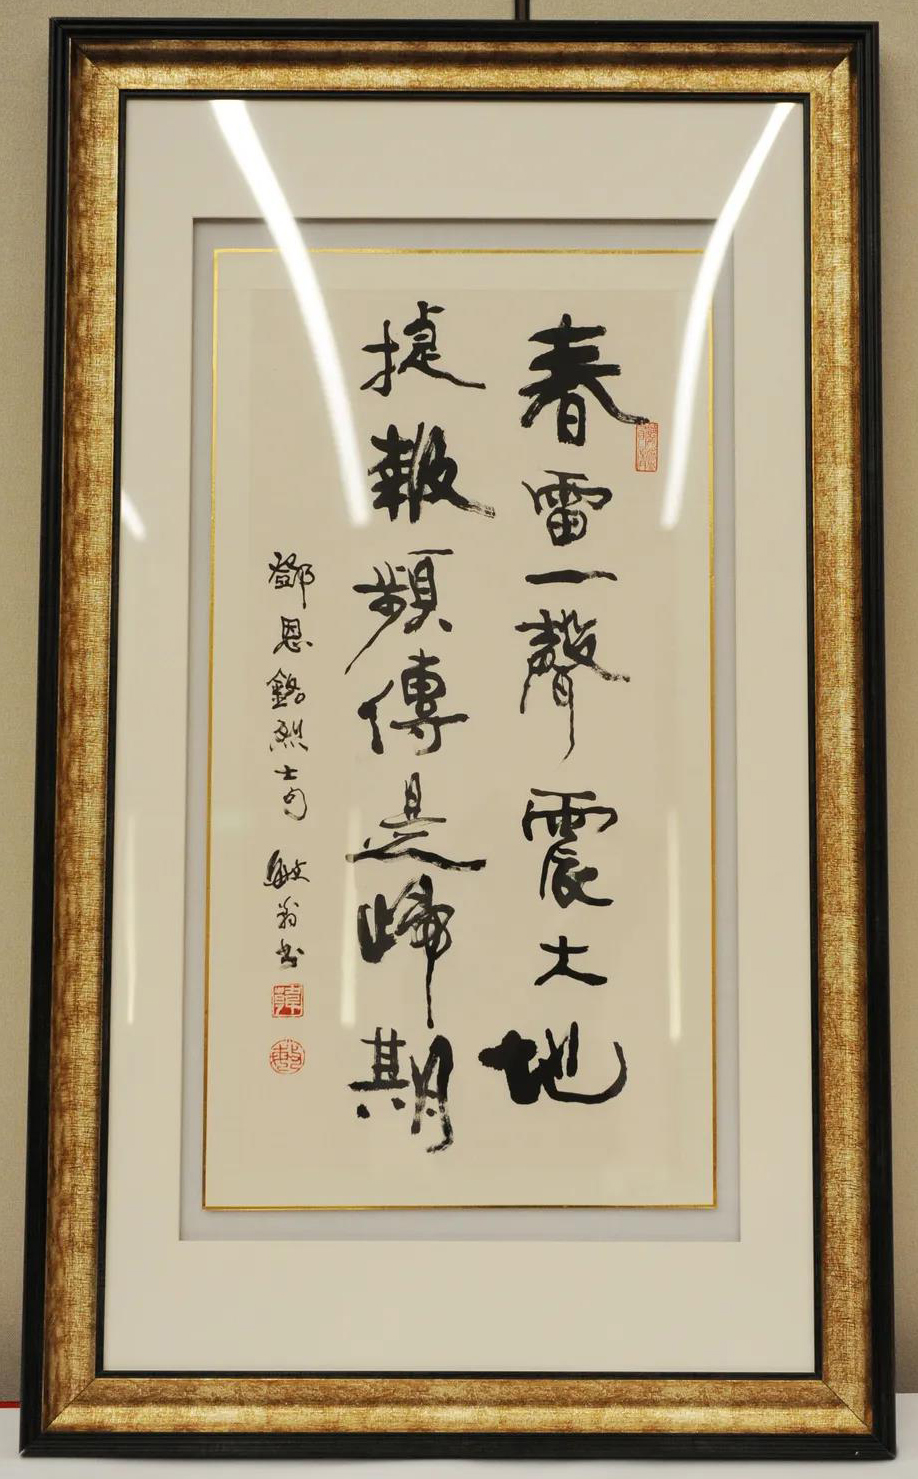 春雷一聲震大地
捷報頻傳是歸期
鄧恩銘烈士句 敏翁书